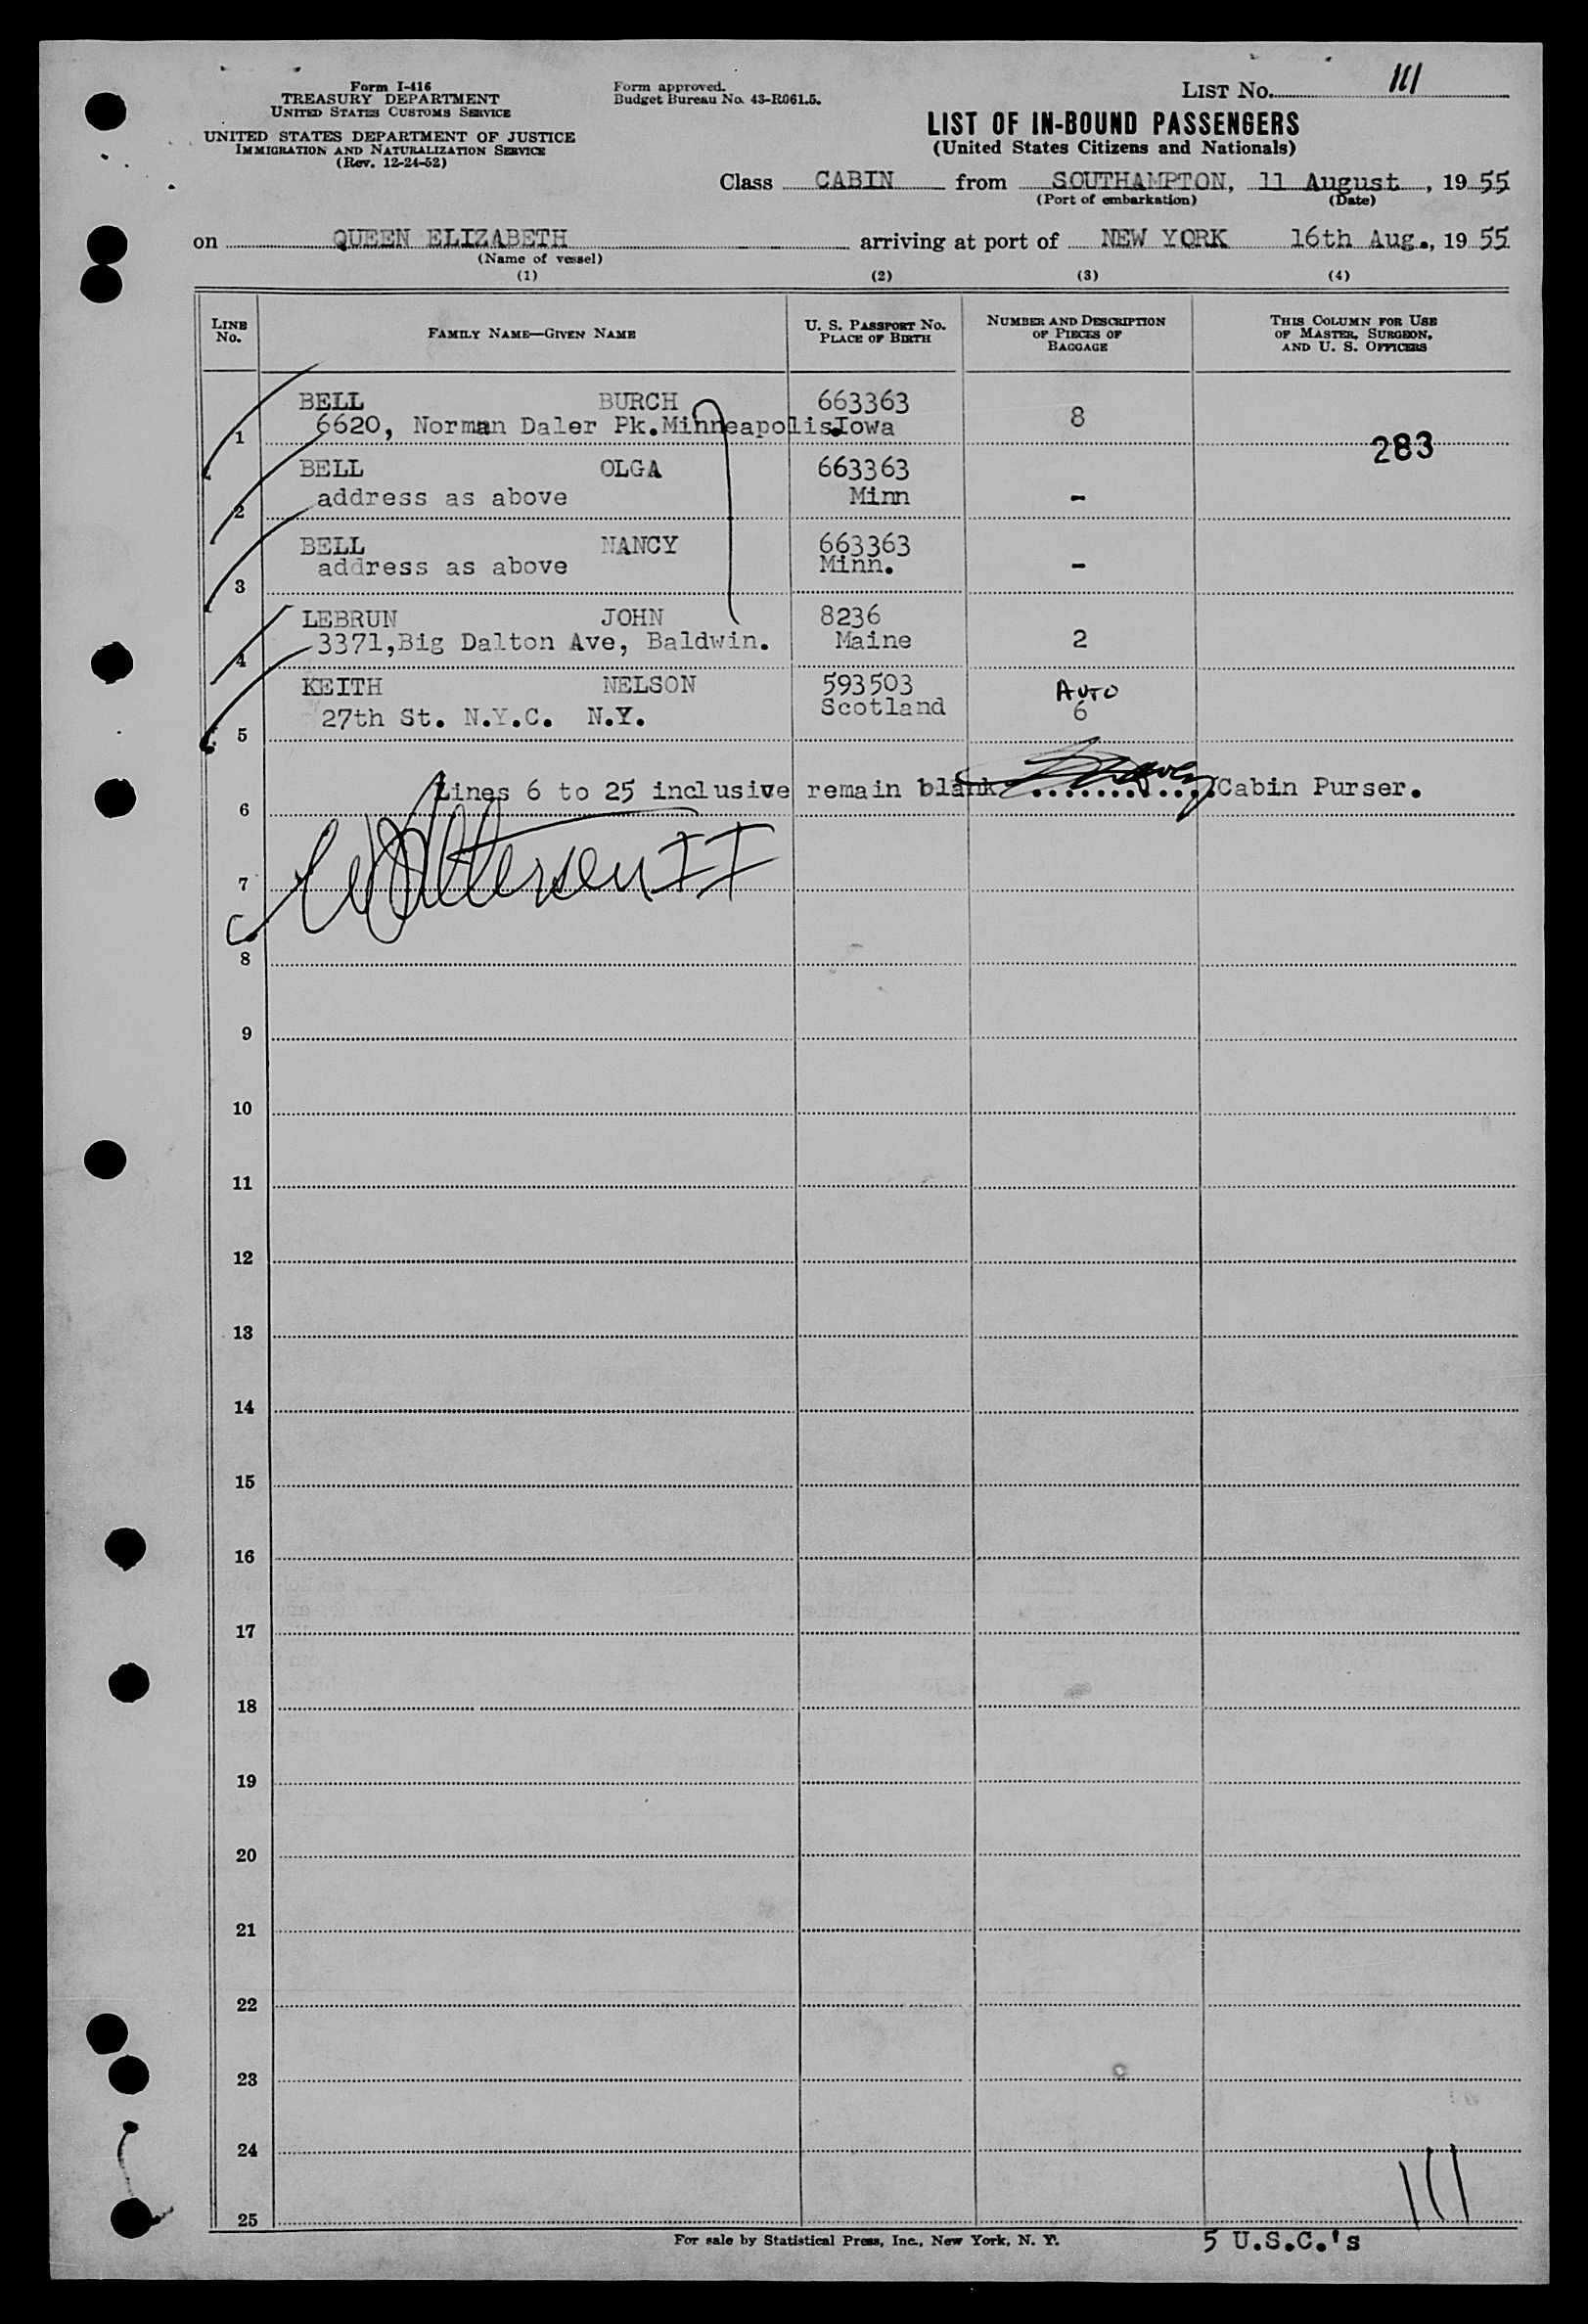 Form I-416
TREASURY DEPARTMENT
UNITED STATES CUSTOMS SERVICE
UNITED STATES DEPARTMENT OF JUSTICE
IMMIGRATION AND NATURALIZATION SERVICE
(Rev. 12-24-52)
Form approved.
Budget Bureau No. 43-R061.5.
LIST No. 111
LIST OF IN-BOUND PASSENGERS
(United States Citizens and Nationals)
Class CABIN from SOUTHAMPTON, 11 August, 1955
(Port of embarkation) (Date)
on QUEEN ELIZABETH arriving at port of NEW YORK 16th Aug., 1955
(Name of vessel)
(1) (2) (3) (4)
LINE No. FAMILY NAME—GIVEN NAME U. S. PASSPORT No. PLACE OF BIRTH NUMBER AND DESCRIPTION OF PIECES OF BAGGAGE THIS COLUMN FOR USE OF MASTER, SURGEON, AND U. S. OFFICERS
BELL BURCH 663363
1 6620, Norman Daler Pk.Minneapolis.Iowa 8
283
BELL OLGA 663363
2 address as above Minn -
BELL NANCY 663363
3 address as above Minn. -
LEBRUN JOHN 8236
4 3371,Big Dalton Ave, Baldwin. Maine 2
KEITH NELSON 593503 AUTO
5 27th St. N.Y.C. N.Y. Scotland 6
6 Lines 6 to 25 inclusive remain blank Cabin Purser.
7
8
9
10
11
12
13
14
15
16
17
18
19
20
21
22
23
24
25
111
For sale by Statistical Press, Inc., New York, N. Y.
5 U.S.C.'s